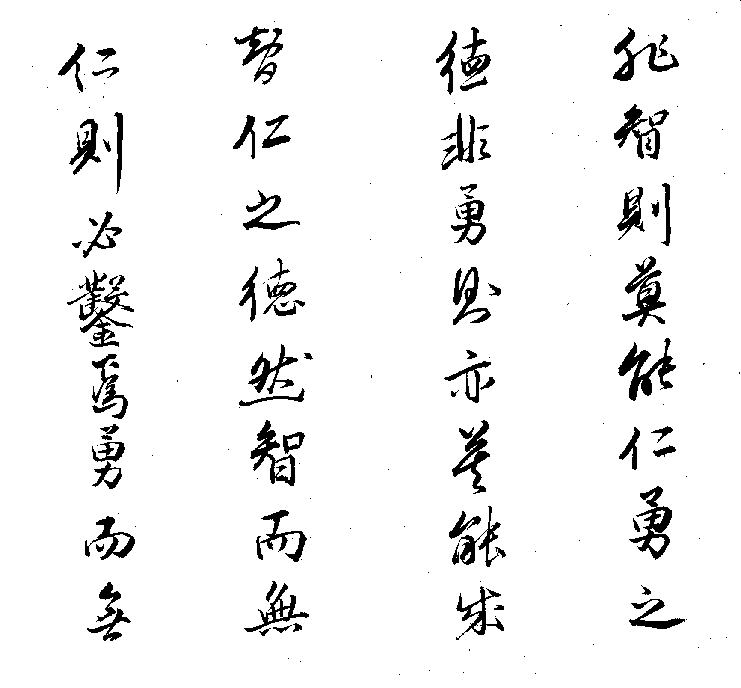 非智則莫能仁勇之
德非勇則亦莫能成
智仁之德然智而無
仁則必鑿焉勇而無